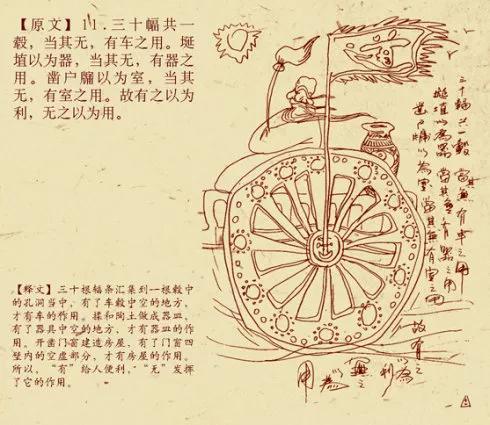 【原文】11.三十幅共一
毂，当其无，有车之用。埏
埴以为器，当其无，有器之
用。凿户牖以为室，当其
无，有室之用。故有之以为
利，无之以为用。
三十輻共一轂當其無有車之用
埏埴以為器當其無有器之用
鑿户牖以為室當其無有室之用
故有之
以為利無之以為用
【释文】三十根辐条汇集到一根毂中
的孔洞当中，有了车毂中空的地方，
才有车的作用。揉和陶土做成器皿，
有了器具中空的地方，才有器皿的作
用。开凿门窗建造房屋，有了门窗四
壁内的空虚部分，才有房屋的作用。
所以，“有”给人便利，“无”发挥
了它的作用。